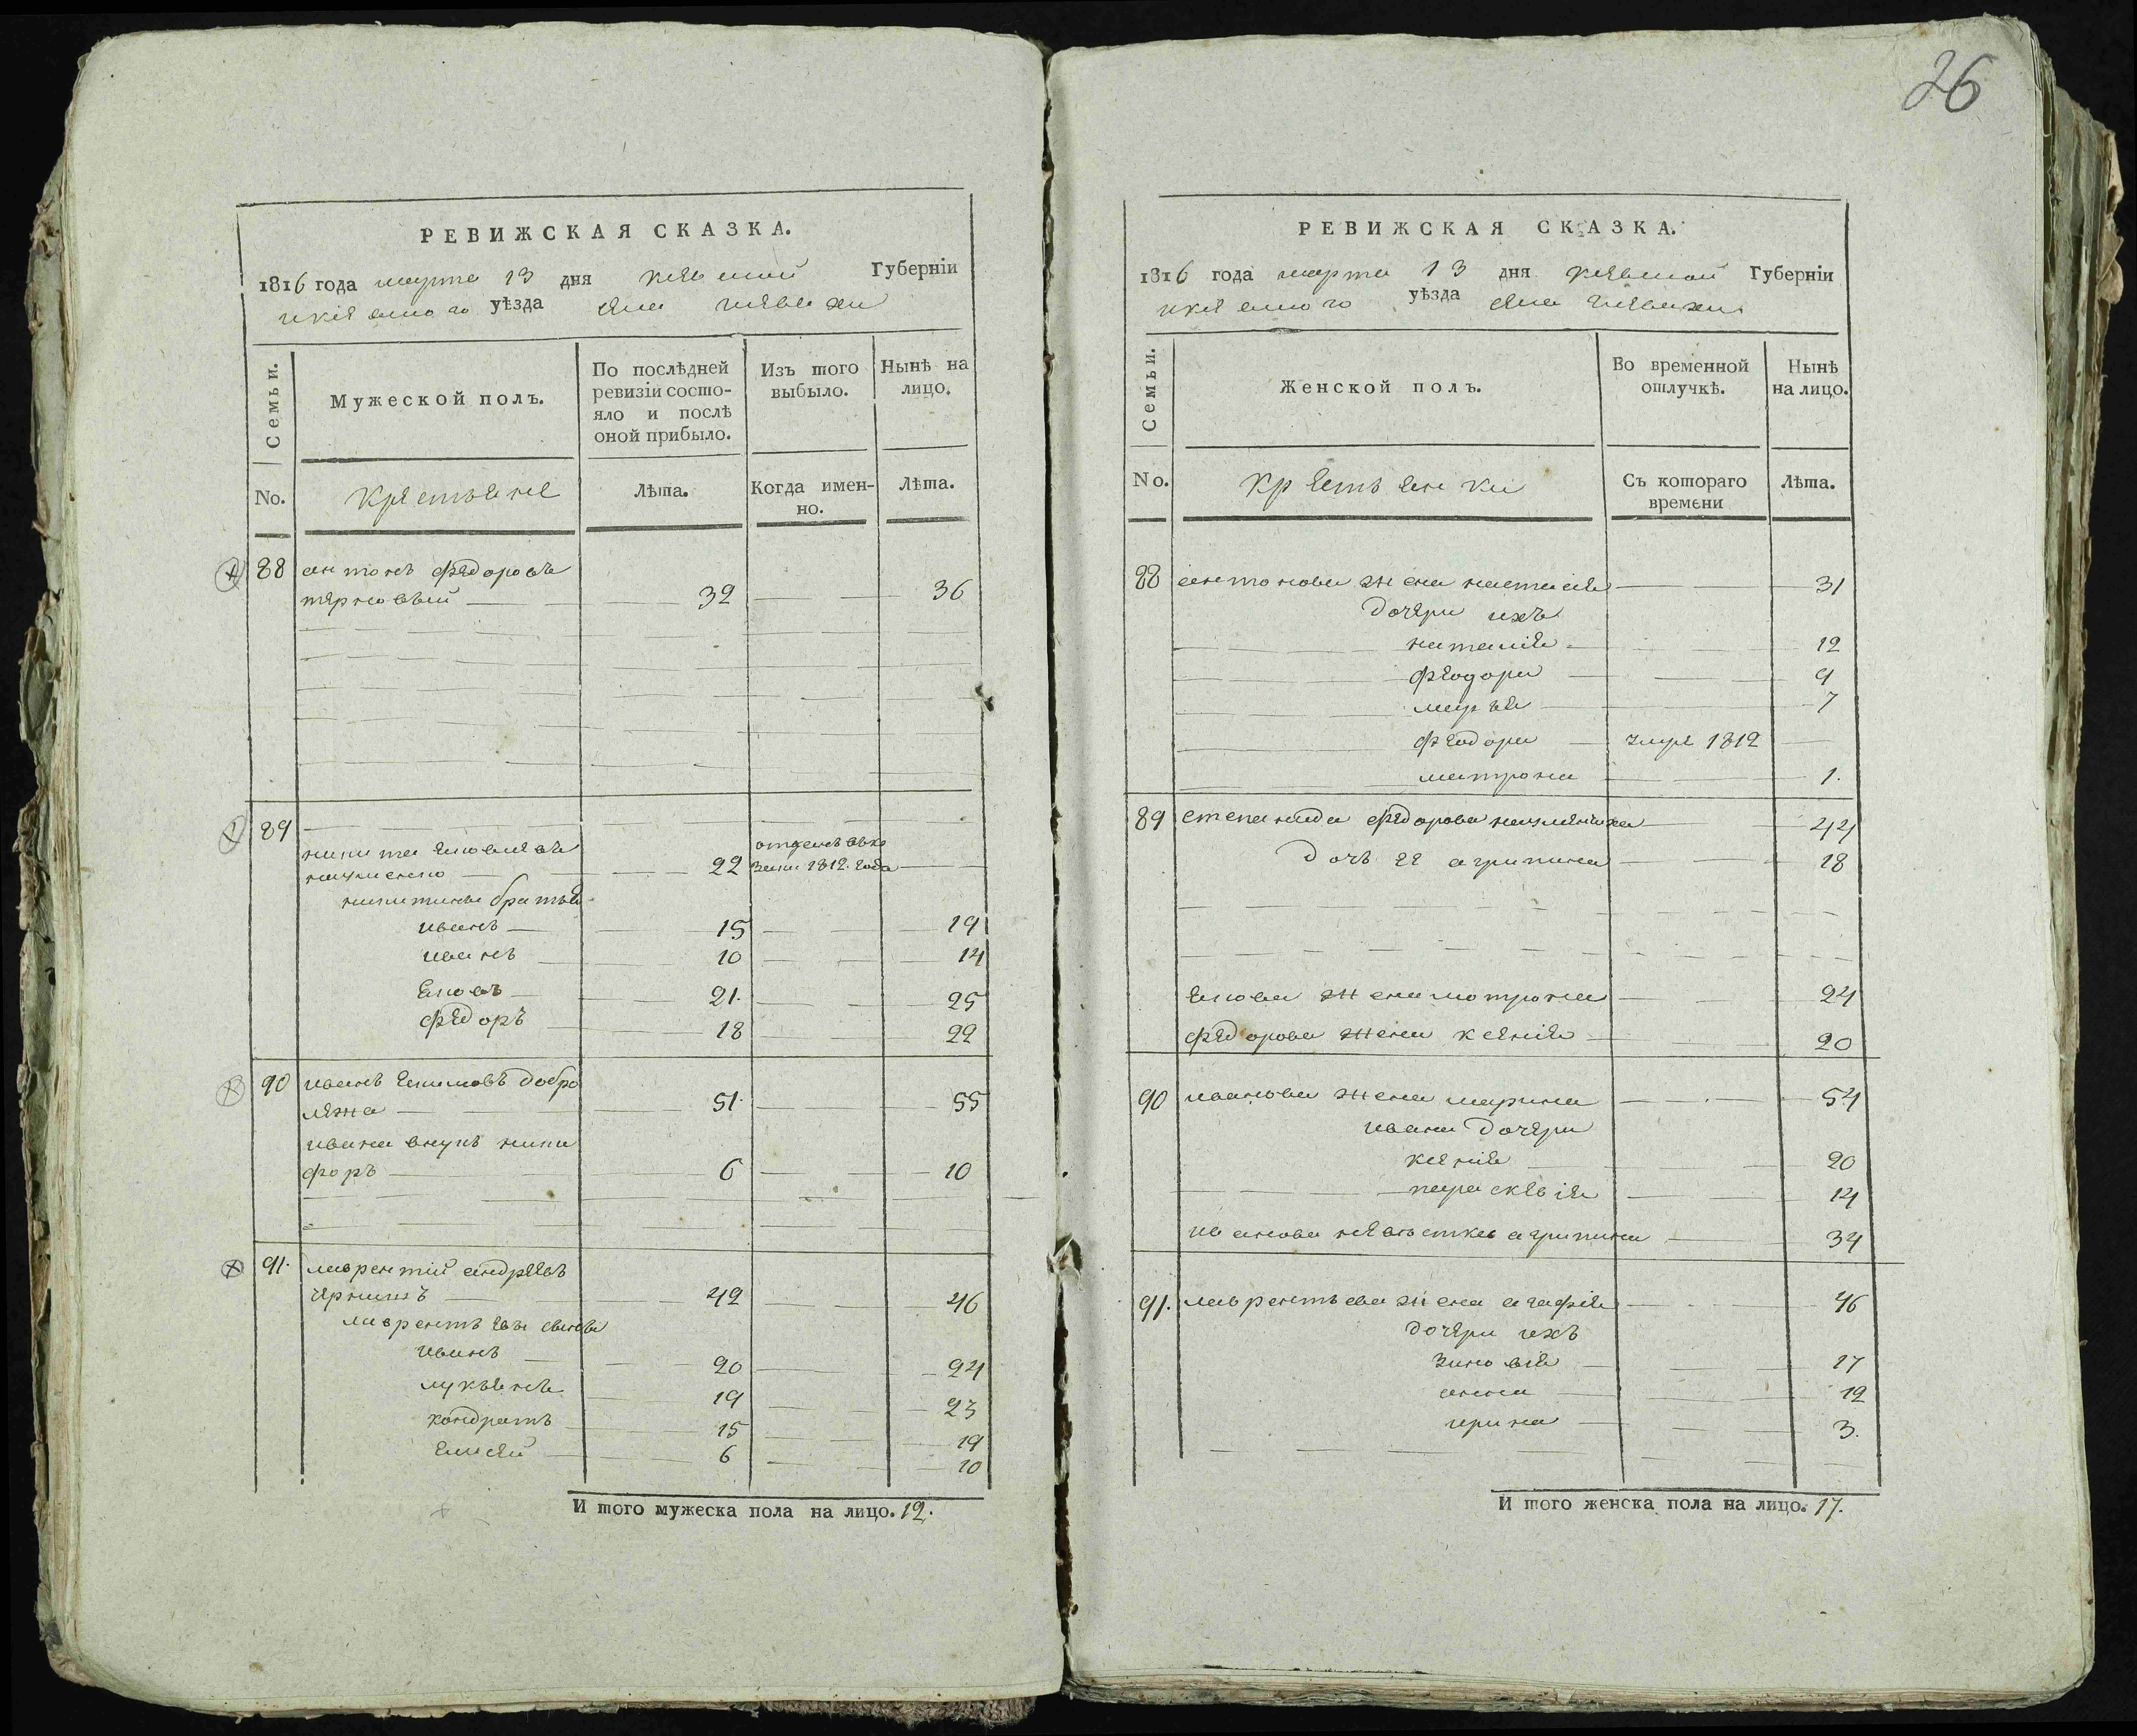 26
РЕВИЖСКАЯ СКАЗКА.
1816 года марта 13 дня киевской Губерніи
уѣзда села
Семьи.
Мужеской полъ.
По послѣдней ревизіи состояло и послѣ оной прибыло.
Изъ того выбыло.
Нынѣ на лицо.
No.
крестьяне
Лѣта.
Когда именно.
Лѣта.
88 антонъ федоровъ
терновый 32 36
89
никита яковлевъ
22 1812 года
никитины братья
иванъ 15 19
иванъ 10 14
яковъ 21. 25
федоръ 18 22
90 иванъ екимовъ добро
лежа 51. 55
ивана внукъ ники
форъ 6 10
91. лаврентій андреевъ
42 46
лаврентьевы сыновья
иванъ 20 24
лукьянъ 19 23
кондратъ 15 19
елисей 6 10
И того мужеска пола на лицо. 12.
РЕВИЖСКАЯ СКАЗКА.
1816 года марта 13 дня киевской Губерніи
уѣзда села
Семьи.
Женской полъ.
Во временной отлучкѣ.
Нынѣ на лицо.
No.
крестьянки
Съ котораго времени
Лѣта.
88 антонова жена настасія 31
дочери ихъ
наталія 12
феодора 9
марья 7
феодора умре 1812
матрона 1.
89 степанида федорова 44
дочь ее агрипина 18
якова жена мотрона 24
федорова жена ксенія 20
90 иванова жена марина 54
ивана дочери
ксенія 20
параскевія 14
иванова невѣстка агрипина 34
91. лаврентьева жена агафія 46
дочери ихъ
зиновія 17
анна 12
ирина 3.
И того женска пола на лицо. 17.